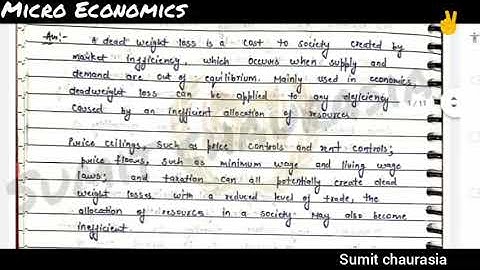 Micro Economics
Ans:- A dead weight loss is a cost to society created by
market inefficiency, which occurs when supply and
demand are out of equilibrium. Mainly used in economics
deadweight loss can be applied to any deficiency
caused by an inefficient allocation of resources
1/11
Price ceilings, such as price controls and rent controls;
price floors, such as minimum wage and living wage
laws; and taxation can all potentially create dead
weight losses. with a reduced level of trade, the
allocation of resources in a society may also become
inefficient.
Sumit chaurasia